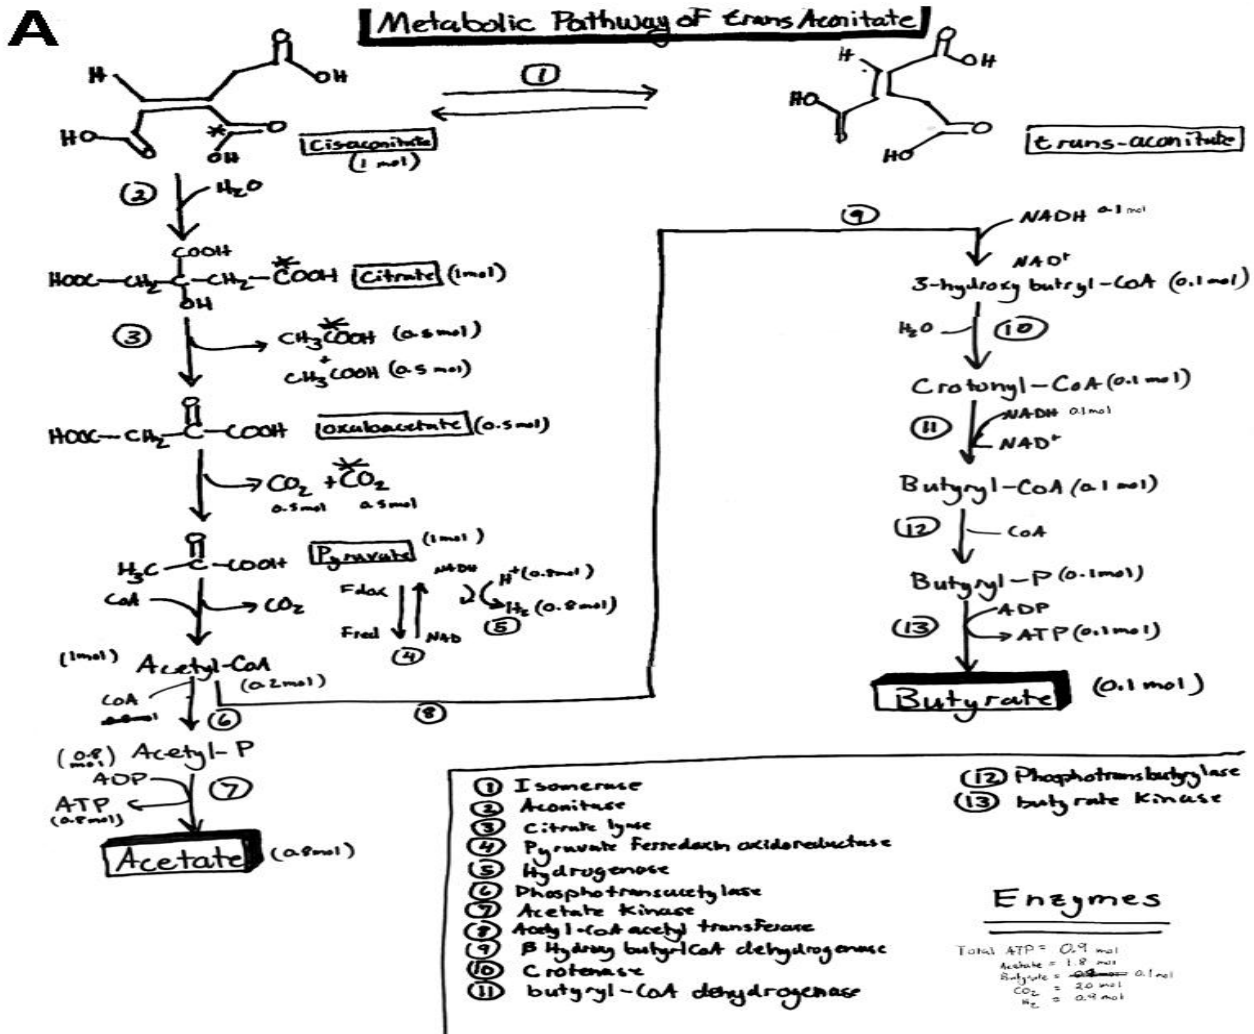 A
Metabolic Pathway of trans Aconitate
H
O
OH
HO
O
*
O
OH
Cisaconitate
(1 mol)
①
H
O
OH
HO
O
HO
trans-aconitate
② H₂O
COOH
*
HOOC-CH₂-C-CH₂-COOH Citrate (1mol)
OH
③
*
CH₃COOH (0.5mol)
+
CH₃COOH (0.5 mol)
O
HOOC-CH₂-C-COOH oxaloacetate (0.5mol)
*
CO₂ + CO₂
0.5mol 0.5mol
O
H₃C-C-COOH Pyruvate (1mol)
CoA CO₂
Fdox NADH H⁺ (0.8mol)
H₂ (0.8mol)
Fred NAD ⑤
④
(1mol) Acetyl-CoA
(0.2mol)
CoA
⑥ ⑧
(0.8 mol) Acetyl-P
ADP
⑦
ATP
(0.8mol)
Acetate (0.8mol)
⑨
NADH 0.1 mol
NAD⁺
3-hydroxy butryl-CoA (0.1mol)
H₂O ⑩
Crotonyl-CoA (0.1mol)
NADH 0.1mol
⑪
NAD⁺
Butyryl-CoA (0.1 mol)
⑫ CoA
Butyryl-P (0.1mol)
ADP
⑬
ATP (0.1mol)
Butyrate (0.1 mol)
① Isomerase
② Aconitase
③ Citrate lyase
④ Pyruvate Ferredoxin oxidoreductase
⑤ Hydrogenase
⑥ Phosphotransacetylase
⑦ Acetate Kinase
⑧ Acetyl-CoA acetyl transferase
⑨ B Hydroxy butyrlCoA dehydrogenase
⑩ Crotenase
⑪ butyryl-CoA dehydrogenase
⑫ Phosphotransbutyrylase
⑬ butyrate Kinase
Enzymes
Total ATP = 0.9 mol
Acetate = 1.8 mol
Butyrate = 0.1 mol
CO₂ = 2.0 mol
H₂ = 0.9 mol